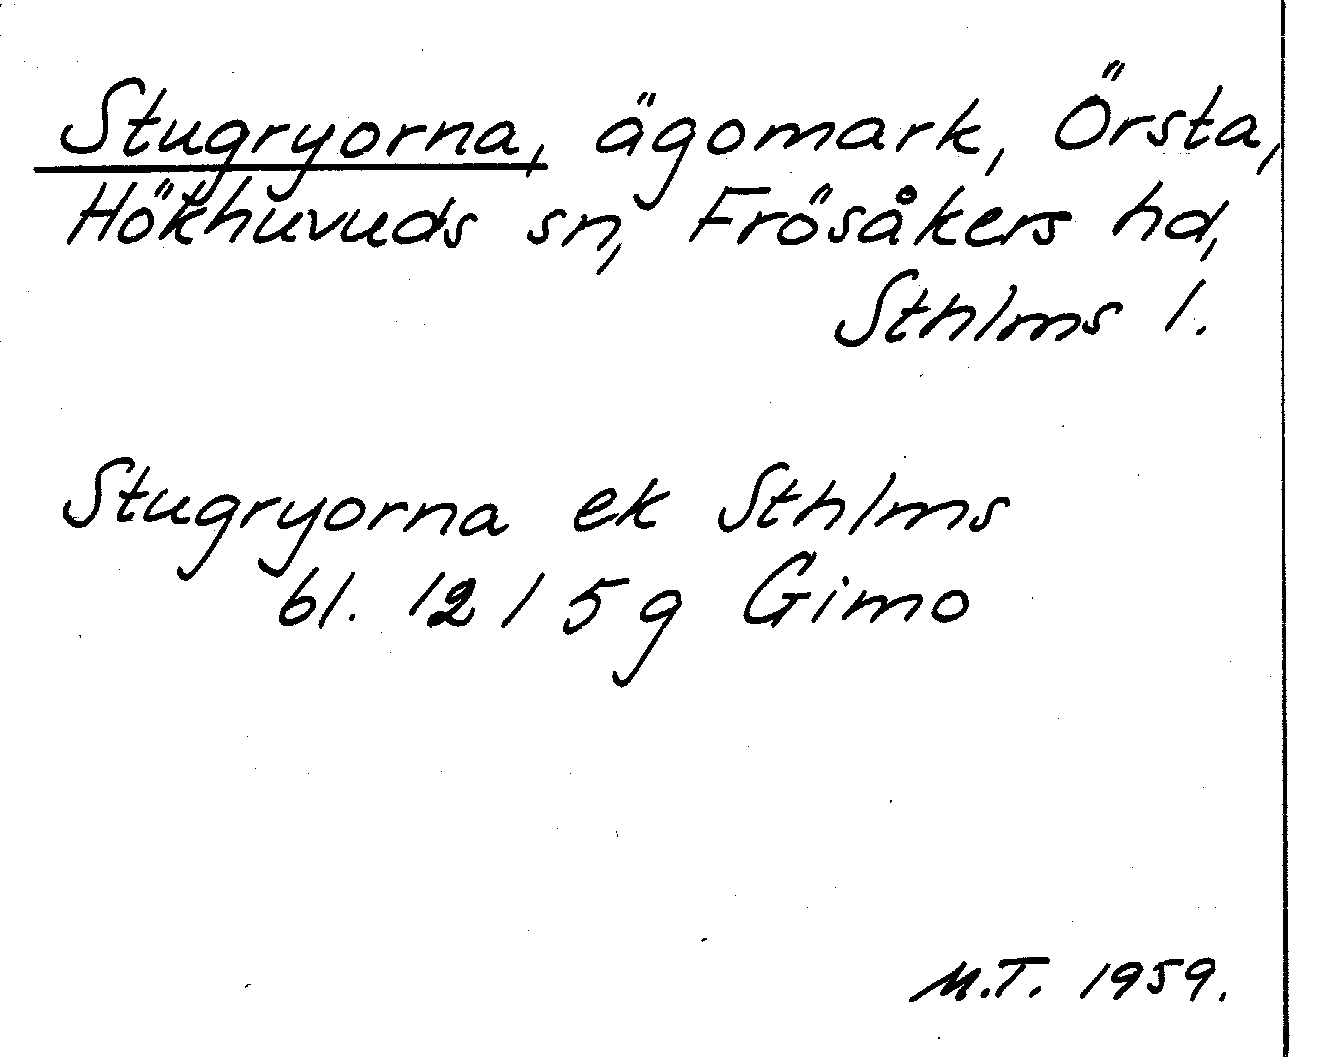 Stugryorna, ägomark, Örsta,
Hökhuvuds sn, Frösåkers hd,
Sthlms l.
Stugryorna ek Sthlms
bl. 12 I 5 g Gimo
M.T. 1959.